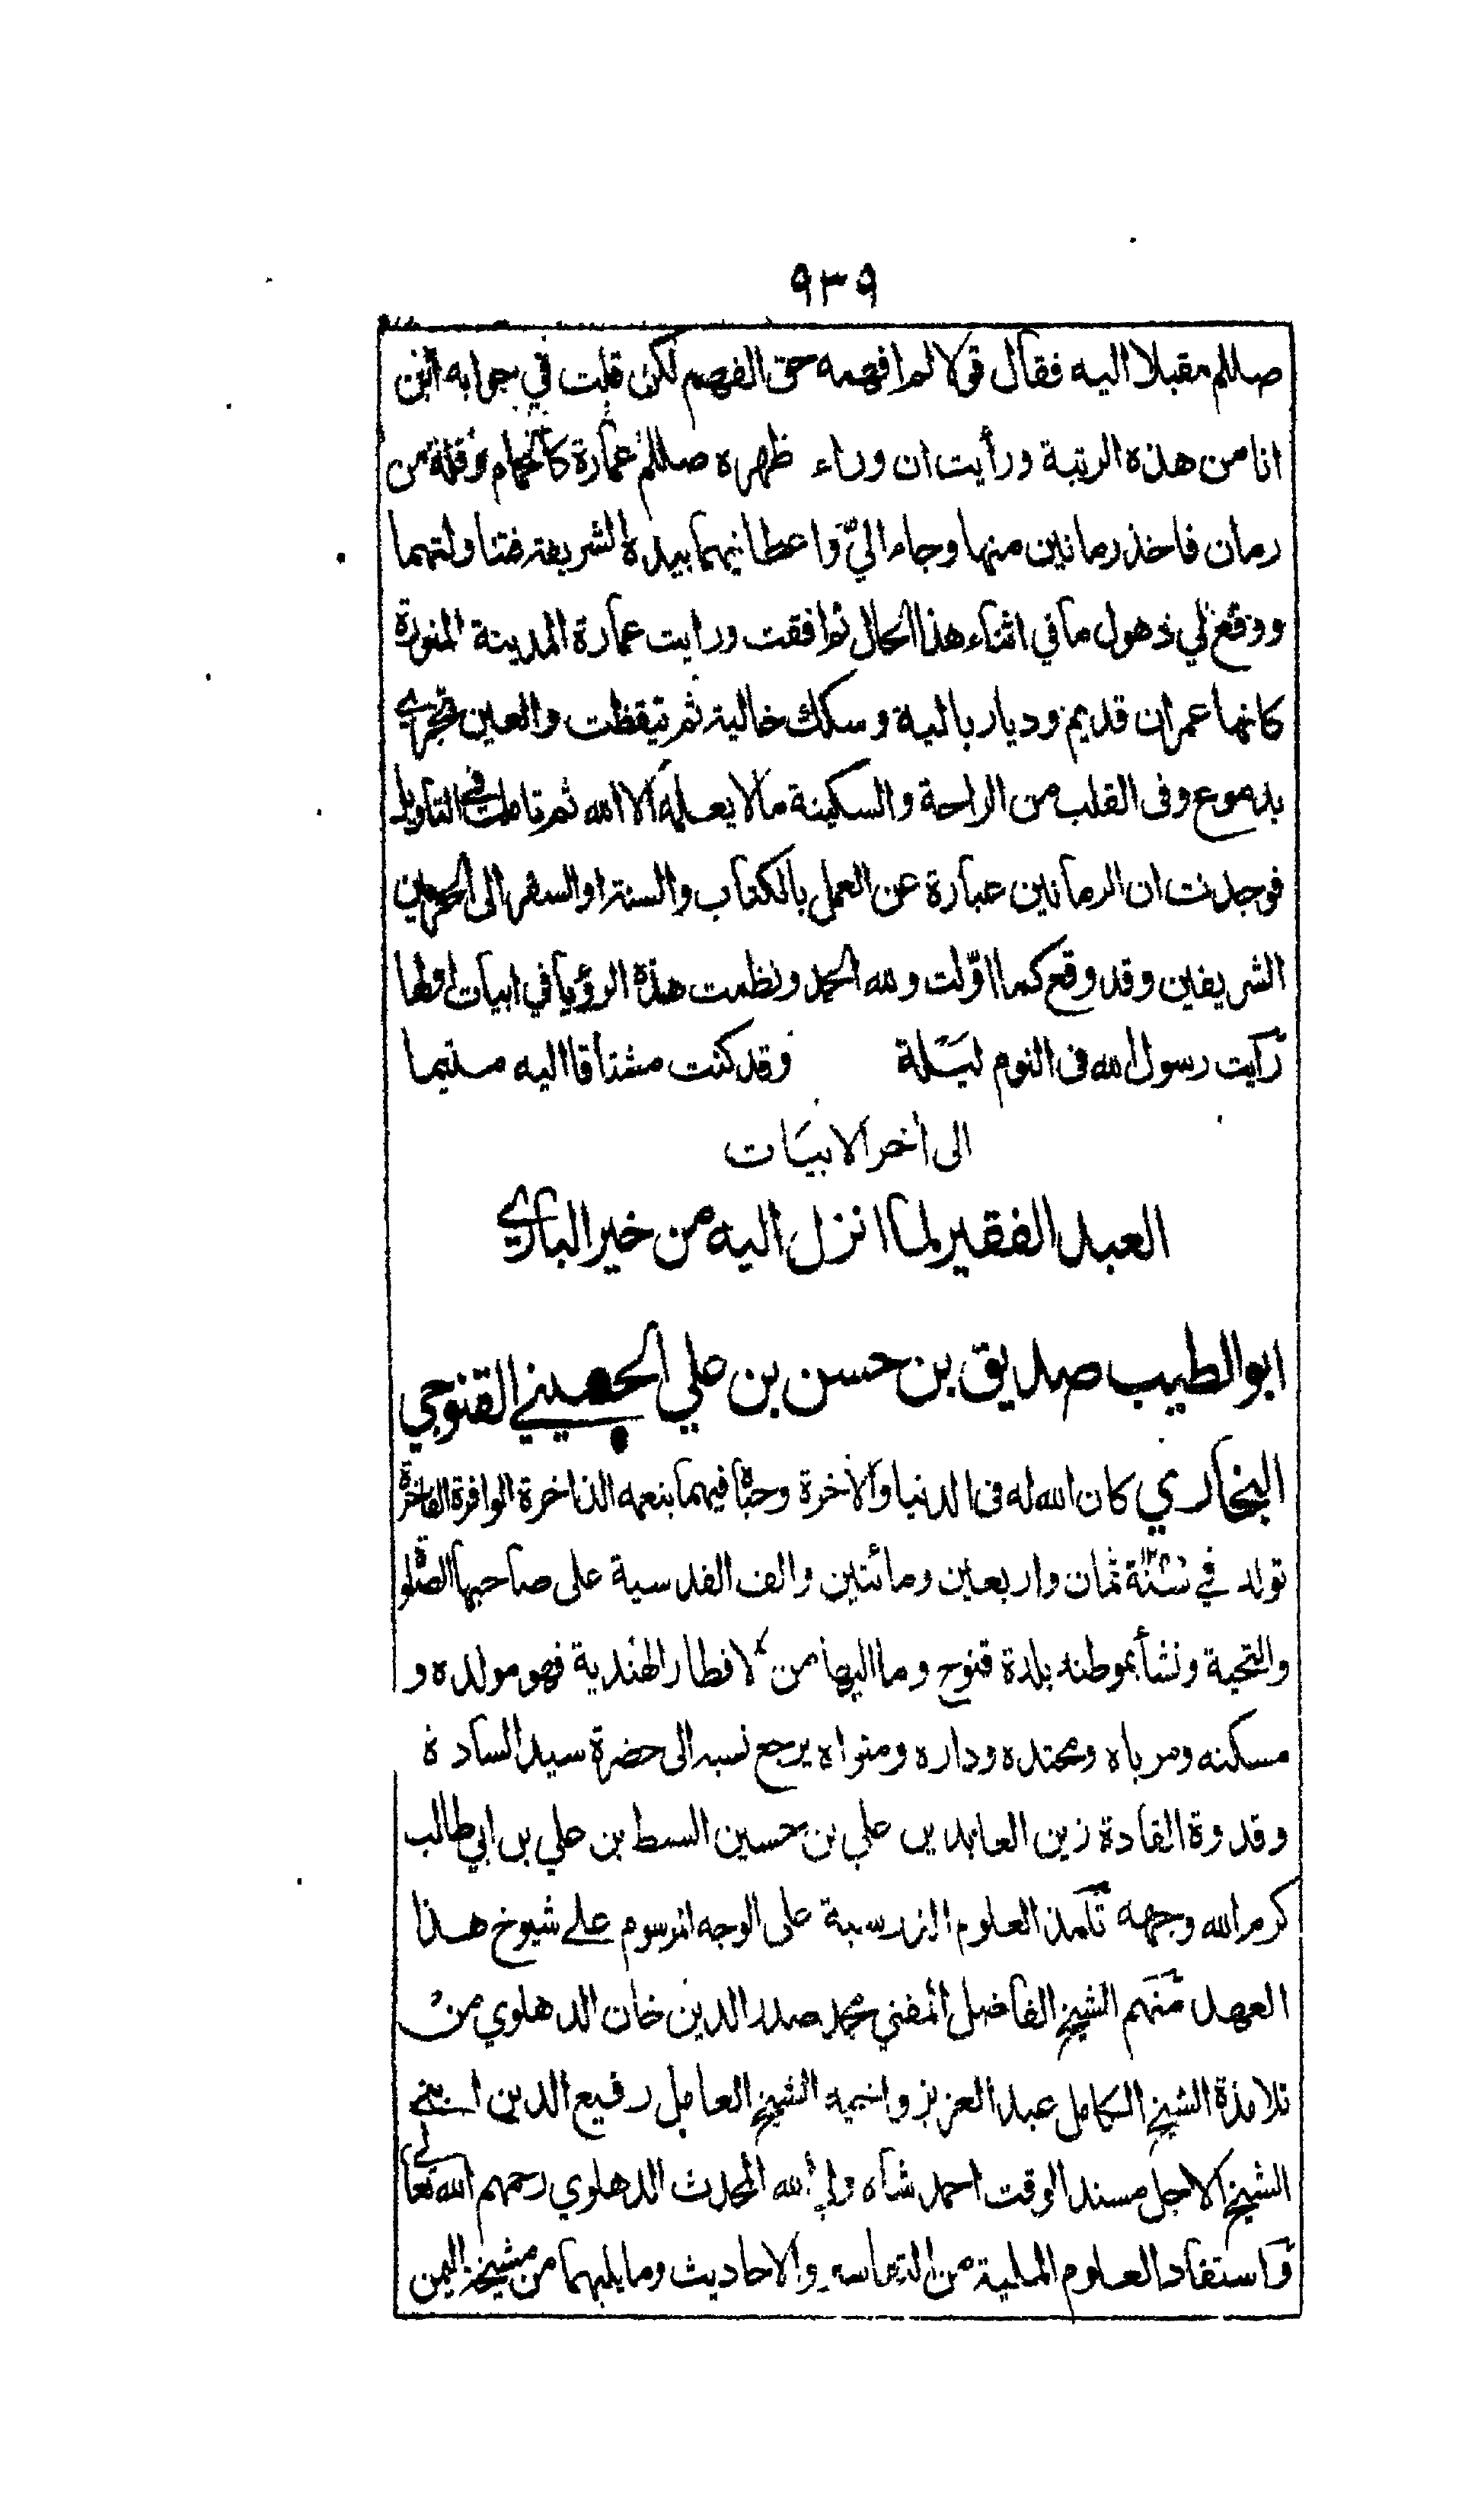 ٩٣٩
صللم مقبلا اليه فقال قولا لم افهمه حق الفهم لكن قلت في جوابه اين
انا من هذه الرتبة ورأيت ان وراء ظهره صللم عمارة كالحمام وفيها من
رمان فاخذ رمانين منها وجاء اليّ واعطانيهما بيده الشريفة فتناولتهما
ووقع لي ذهول ما في اثناء هذا الحال ثم افقت ورايت عمارة المدينة المنورة
كانها عمران قديم وديار بالية وسكك خالية ثم تيقظت والعين تجري
بدموع وفى القلب من الراحة والسكينة ما لا يعلمه الا الله ثم تاملت في التاويل
فوجدت ان الرمانين عبارة عن العمل بالكتاب والسنة او السفر الى الحرمين
الشريفين وقد وقع كما اوّلت ولله الحمد ونظمت هذه الرؤيا في ابيات اولها
رأيت رسول الله فى النوم ليلة وقد كنت مشتاقا اليه متيما
الى اخر الابيات
العبد الفقير لما انزل اليه من خير الباري
ابو الطيب صديق بن حسن بن علي الحسيني القنوجي
البخاري كان الله له فى الدنيا والاخرة وحباه فيهما بنعمه الذاخرة الوافرة الفاخرة
تولد في سنة ثمان واربعين ومائتين والف القدسية على صاحبها الصلوة
والتحية ونشأ بموطنه بلدة قنوج وما اليها من الاقطار الهندية فهو مولده و
مسكنه ومرباه ومحتده وداره ومثواه يرجع نسبه الى حضرة سيد السادة
وقدوة القادة زين العابدين علي بن حسين السبط بن علي بن ابي طالب
كرم الله وجهه تلمذ العلوم الدرسية على الوجه المرسوم على شيوخ هذا
العهد منهم الشيخ الفاضل المفتي محمد صدر الدين خان الدهلوي من
تلامذة الشيخ الكامل عبد العزيز واخيه الشيخ العامل رفيع الدين ابني
الشيخ الاجل مسند الوقت احمد شاه ولي الله المحدث الدهلوي رحمهم الله تعالى
واستفاد العلوم الملية من التفاسير والاحاديث وما يليهما من مشيخة اليمن